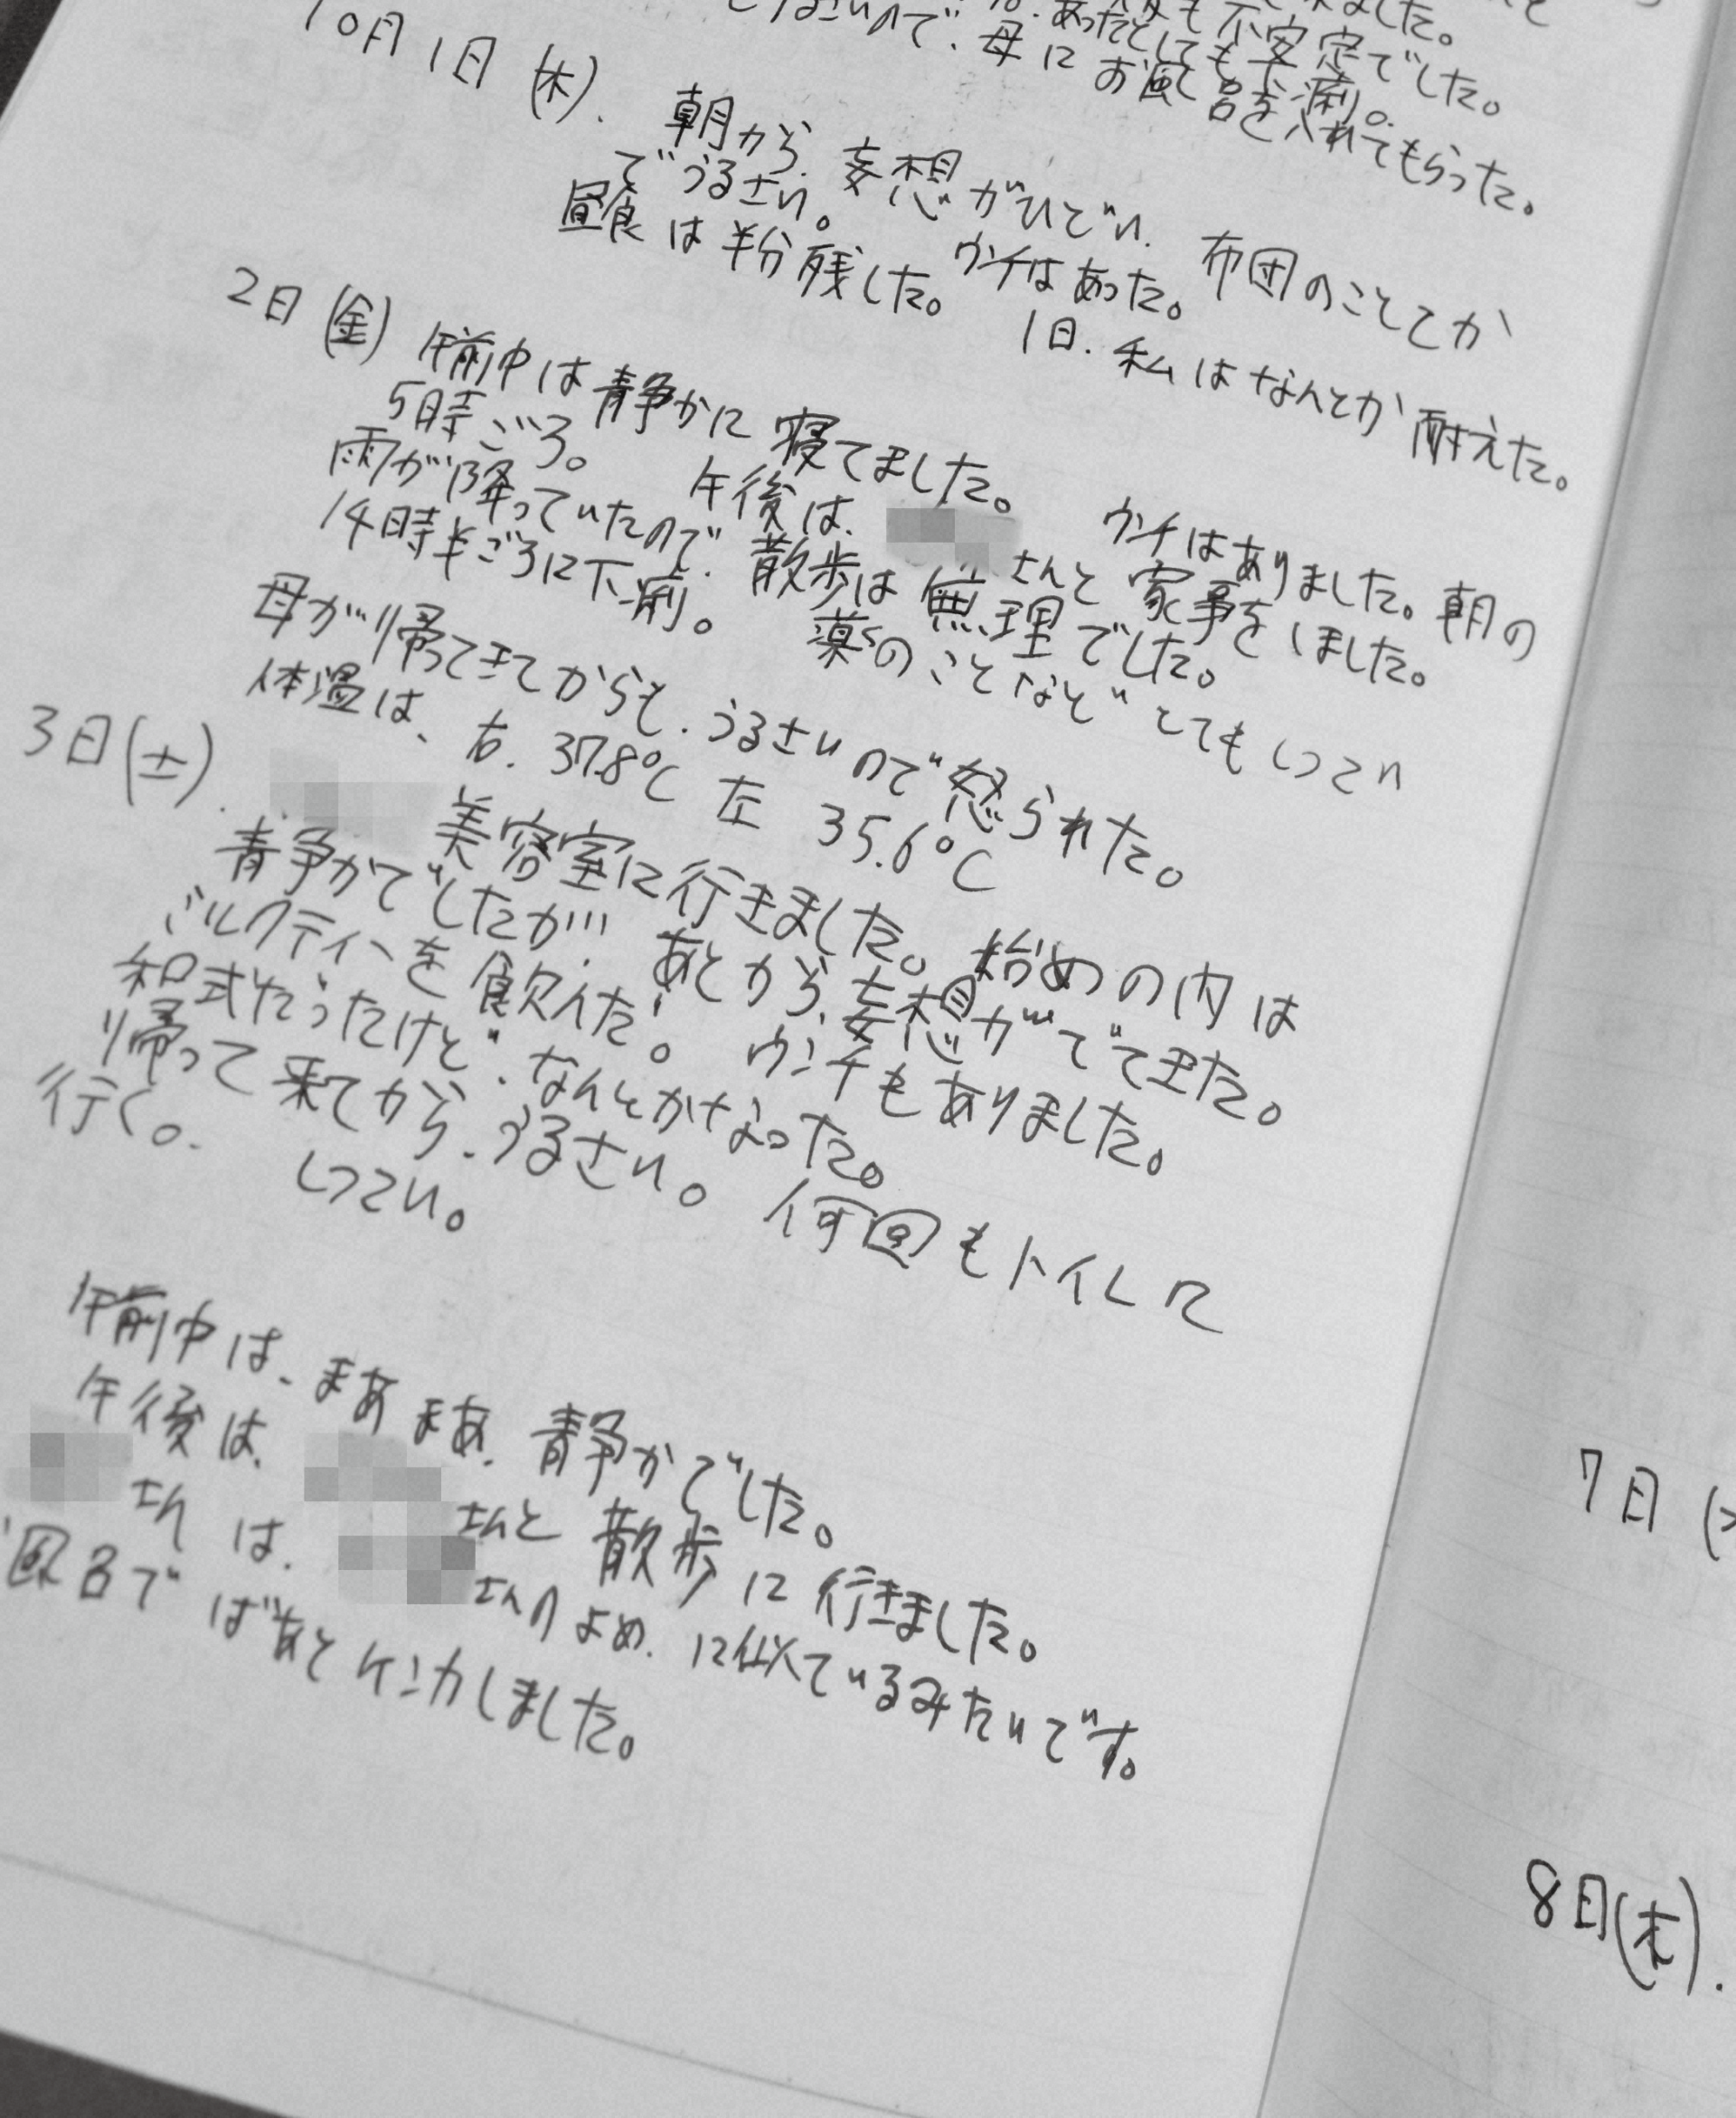 ました。
も不安定でした。
あったとしても下痢。
ので、母にお風呂を入れてもらった。
10月1日(木).朝から、妄想がひどい、布団のこととか
でうるさい。ウンチはあった。
昼食は半分残した。1日、私はなんとか耐えた。
2日(金)午前中は静かに寝てました。ウンチはありました。朝の
5時ごろ。午後は、さんと家事をしました。
雨が降っていたので、散歩は無理でした。
14時半ごろに下痢。薬のことなどとてもしつこい
母が帰ってきてからも、うるさいので怒られた。
体温は、右、37.8℃左35.6℃
3日(土).美容室に行きました。始めの内は
静かでしたが、あとから、妄想がでて来た。
ミルクティーを飲んだ。ウンチもありました。
和式だったけど、なんとかなった。
帰って来てから、うるさい。何回もトイレに
行く。しつこい。
午前中は、まあまあ、静かでした。
午後は、さんと散歩に行きました。
さんは、さんのよめ、に似ているみたいです。
でばあとケンカしました。
7日(
8日(木).